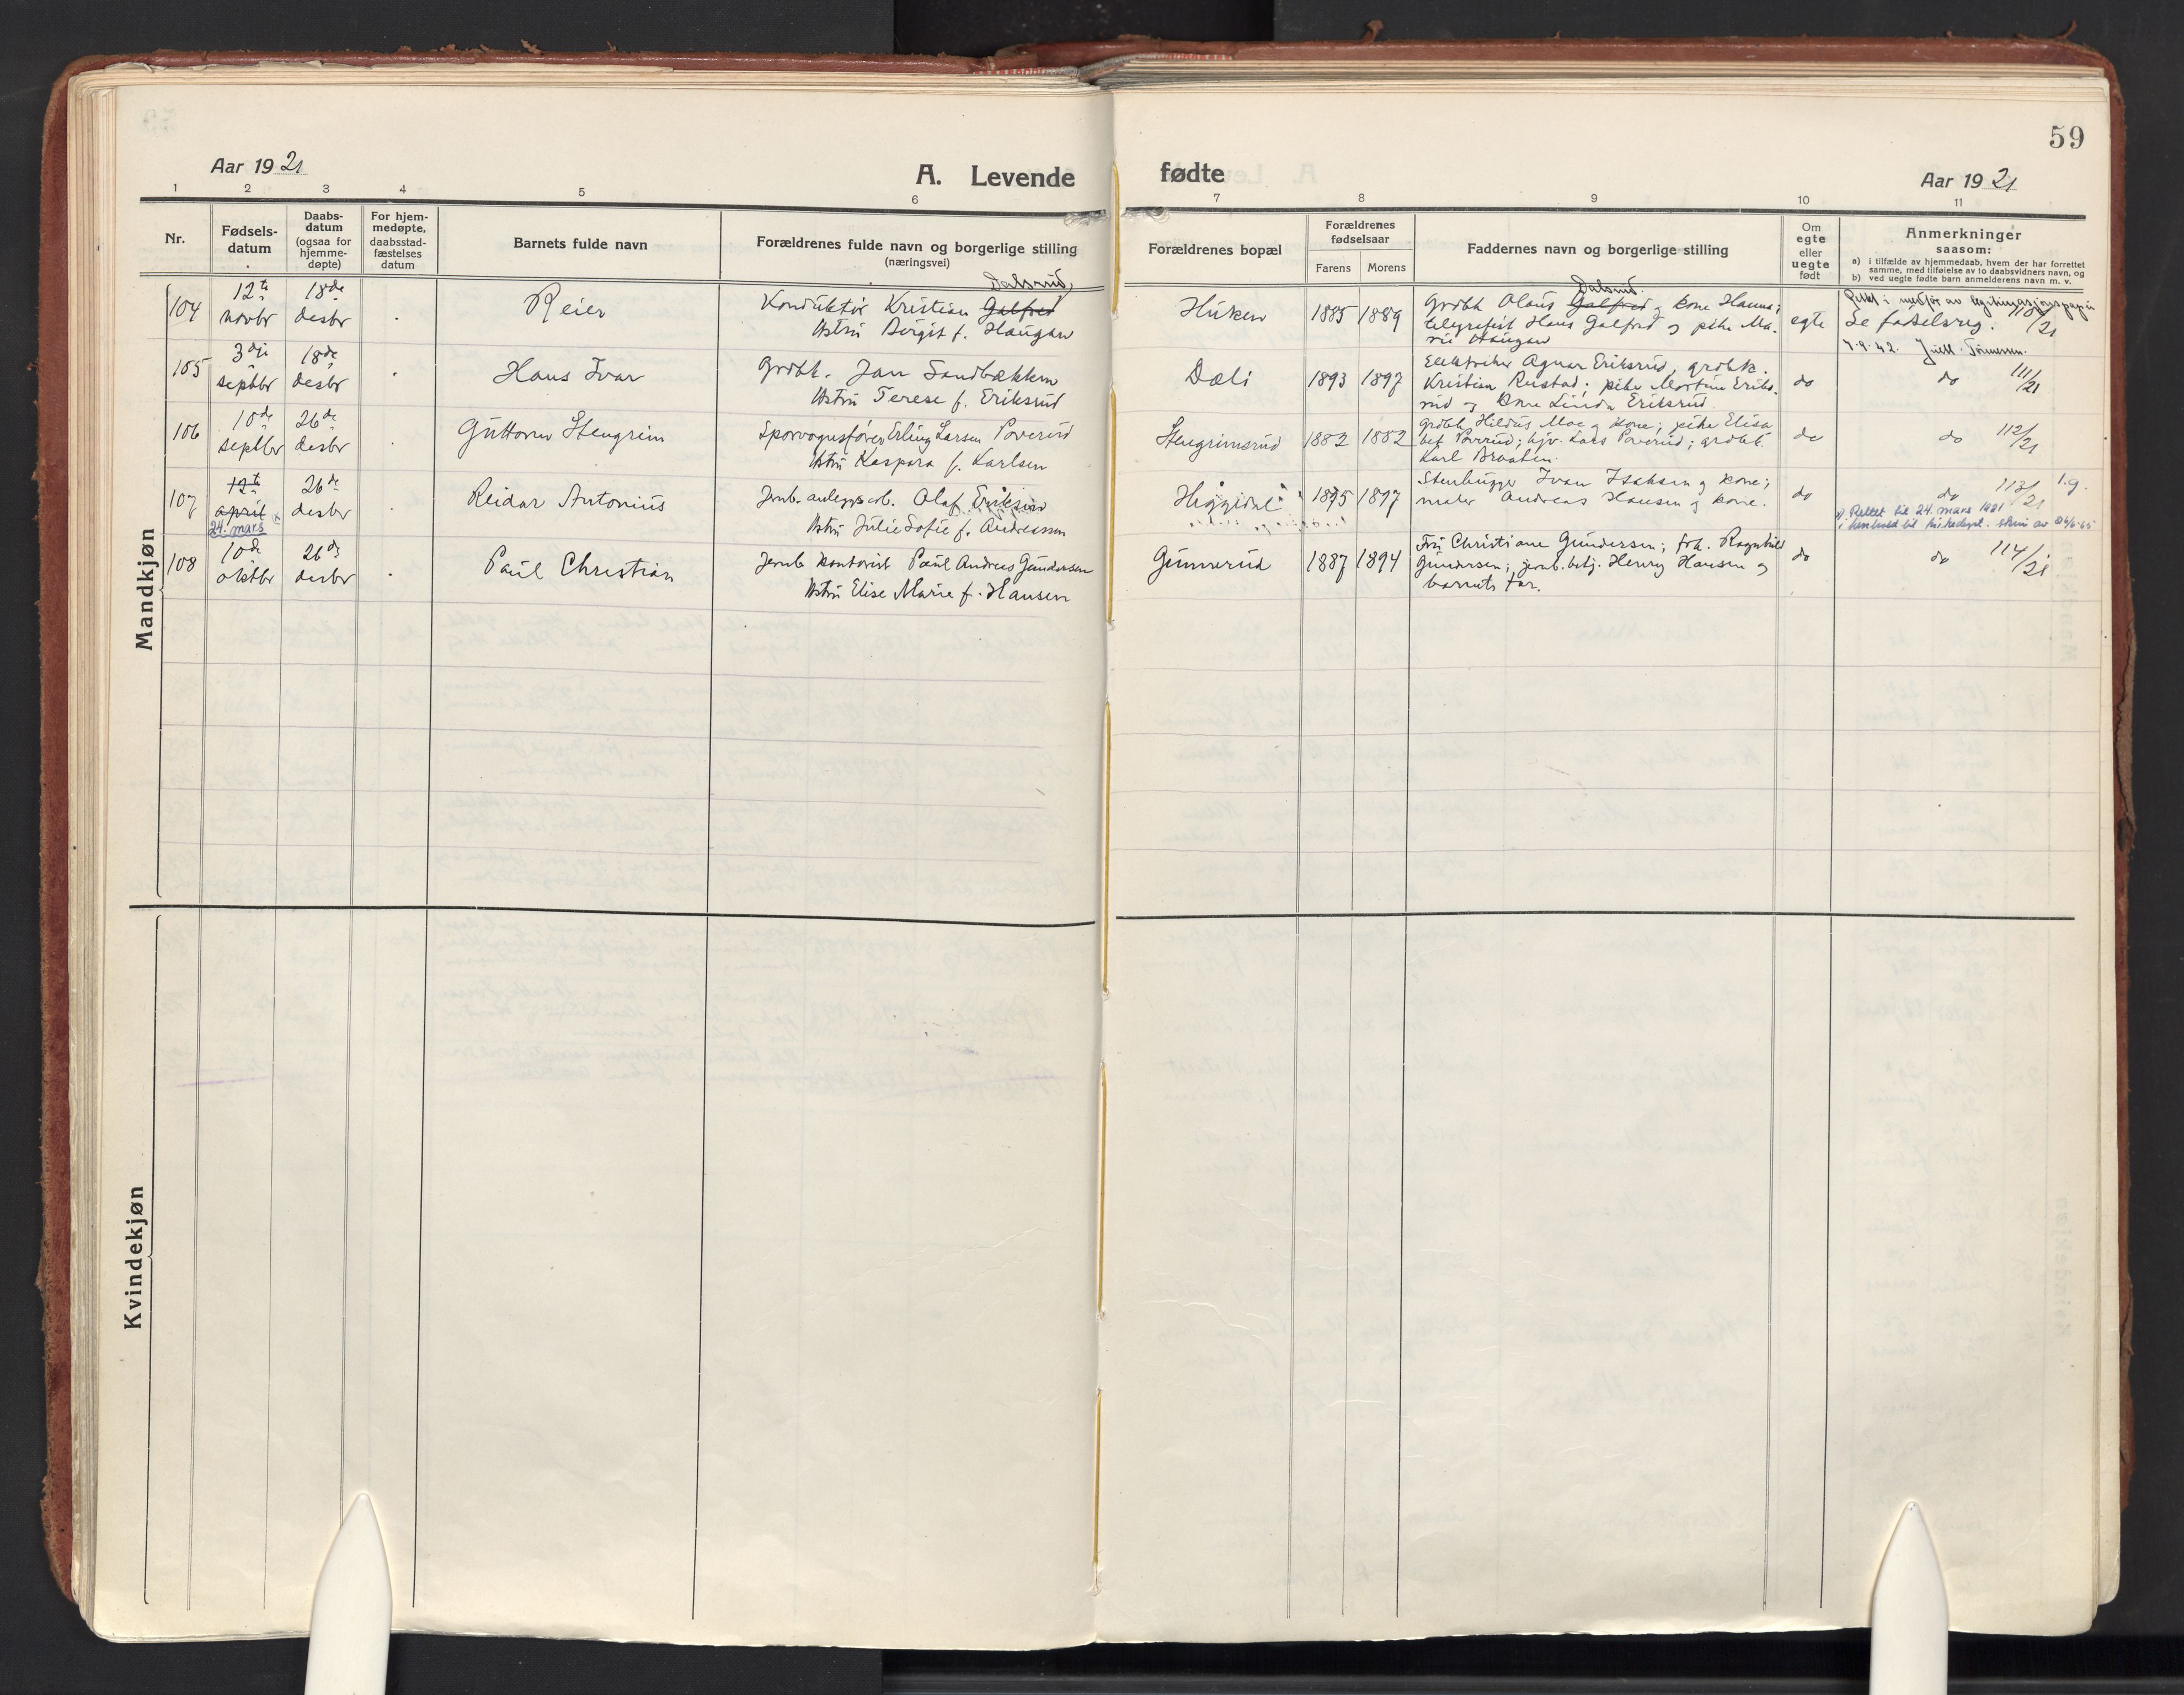 59
Aar 1921
A. Levende
fødte
Aar 1921
1 2 3 4 5 6 7 8 9 10 11
Nr.
Fødsels-
datum
Daabs-
datum
(ogsaa for
hjemme-
døpte)
For hjem-
medøpte,
daabsstad-
fæstelses
datum
Barnets fulde navn
Forældrenes fulde navn og borgerlige stilling
(næringsvei)
Forældrenes bopæl
Forældrenes
fødselsaar
Farens Morens
Faddernes navn og borgerlige stilling
Om
egte
eller
uegte
født
Anmerkninger
saasom:
a) i tilfælde av hjemmedaab, hvem der har forrettet
samme, med tilføielse av to daabsvidners navn, og
b) ved uegte fødte barn anmelderens navn m. v.
Mandkjøn
104
12te
novbr
18de
desbr
Reier
Dalsrud
Konduktør Kristian Galfred
Hstru Bergit f. Haugan
Huken
1885 1889
Dalsrud.
Grdbk Olaus Galfred og kone Hanna;
telegrafist Hans Galfred og pike Ma-
rie Haugan
egte
Rettet i medfør av legitimasjonspapir
Se fødselsreg.
/21
7.9.42.
105
3dje
septbr
18de
desbr
Hans Ivar
Grdbk. Jan Sandbækken
Hstru Terese f. Eriksrud
Dæli
1893 1897
Elektriker Agnar Eriksrud, grdbk.
Kristian Rustad; pike Martine Eriks-
rud og kone Linda Eriksrud
do
do 111/21
106
10de
septbr
26de
desbr
Guttorm Stengrim
Sporvognsfører Erling Larsen Poverud
Hstru Kaspara f. Karlsen
Stengrimsrud
1882 1882
Grdbk Hildus Moe og kone; pike Elisa-
bet Poverud; gjr. Lars Poverud; grdbk
Karl Braaten
do
do 112/21
107
12te
april
24. mars
26de
desbr
Reidar Antonius
Jernb. anleggsarb. Olaf Eriksen
Hstru Julie Sofie f. Andreassen
Heggedal
1895 1897
Stenhugger Ivan Isaksen og kone;
maler Andreas Hansen og kone.
do
do 113/21 l.g.
x) Rettet til 24. mars 1921
i henhold til kirkedept. skriv av
108
10de
oktbr
26de
desbr
Paul Christian
Jernb kontorist Paul Andreas Gundersen
Hstru Elise Marie f. Hansen
Gunnerud
1887 1894
Fru Christiane Gundersen; frk. Ragnhild
Gundersen; jernb.betj. Henry Hansen og
barnets far.
do
do 114/21
Kvindekjøn